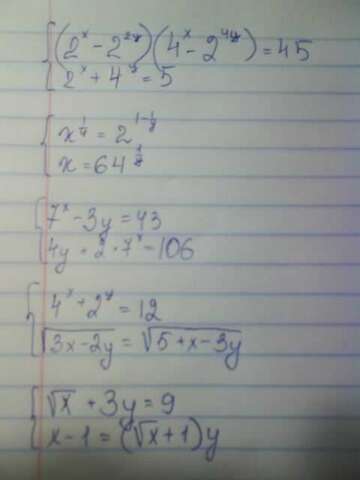 {(2^x - 2^{2y})(4^x - 2^{4y}) = 45
2^x + 4^y = 5
{x^{1/4} = 2^{1-1/y}
x = 64^{1/y}
{7^x - 3y = 43
4y · 2 · 7^x = 106
{4^x + 2^y = 12
√(3x-2y) = √(5+x-3y)
{√x + 3y = 9
x - 1 = (√x + 1)y